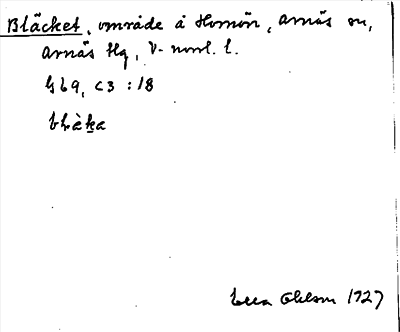 Bläcket, område å Hornön, Arnäs sn,
Arnäs Hg, V-norrl. l.
Gba, C3 :18
blàka
Ohlson 1927